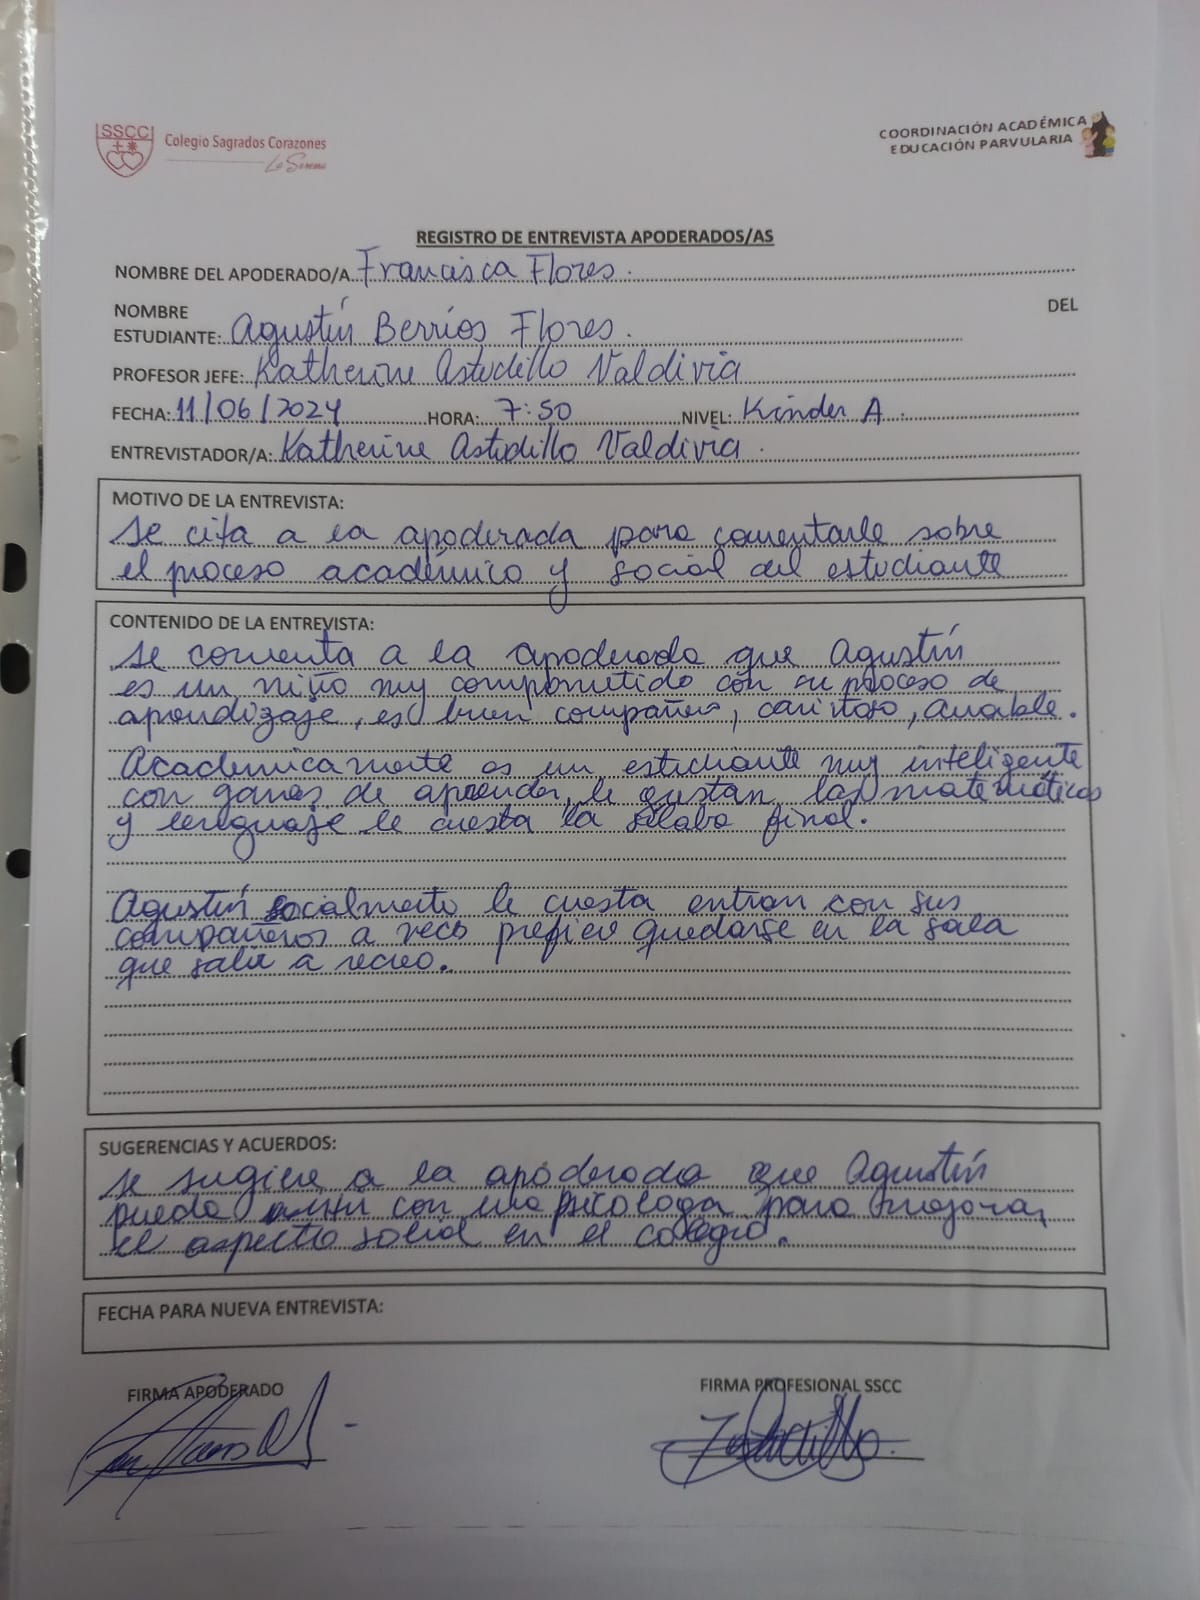 SSCC
Colegio Sagrados Corazones
La Serena
COORDINACIÓN ACADÉMICA
EDUCACIÓN PARVULARIA
REGISTRO DE ENTREVISTA APODERADOS/AS
NOMBRE DEL APODERADO/A Francisca Flores.
NOMBRE DEL
ESTUDIANTE: Agustín Berríos Flores.
PROFESOR JEFE: Katherine Astudillo Valdivia
FECHA: 11/06/2024 HORA: 7:50 NIVEL: Kinder A.
ENTREVISTADOR/A: Katherine Astudillo Valdivia.
MOTIVO DE LA ENTREVISTA:
Se cita a la apoderada para comentarle sobre
el proceso académico y social del estudiante
CONTENIDO DE LA ENTREVISTA:
Se comenta a la apoderada que Agustín
es un niño muy comprometido con su proceso de
aprendizaje, es buen compañero, cariñoso, amable.
Academicamente es un estudiante muy inteligente
con ganas de aprender, le gustan las matemáticas
y lenguaje le cuesta la sílaba final.
Agustín socialmente le cuesta entrar con sus
compañeros a prefiere quedarse en la sala
que salir a recreo.
SUGERENCIAS Y ACUERDOS:
Se sugiere a la apoderada que Agustín
pueda asistir con una psicologa para mejorar
el aspecto social en el colegio.
FECHA PARA NUEVA ENTREVISTA:
FIRMA APODERADO FIRMA PROFESIONAL SSCC